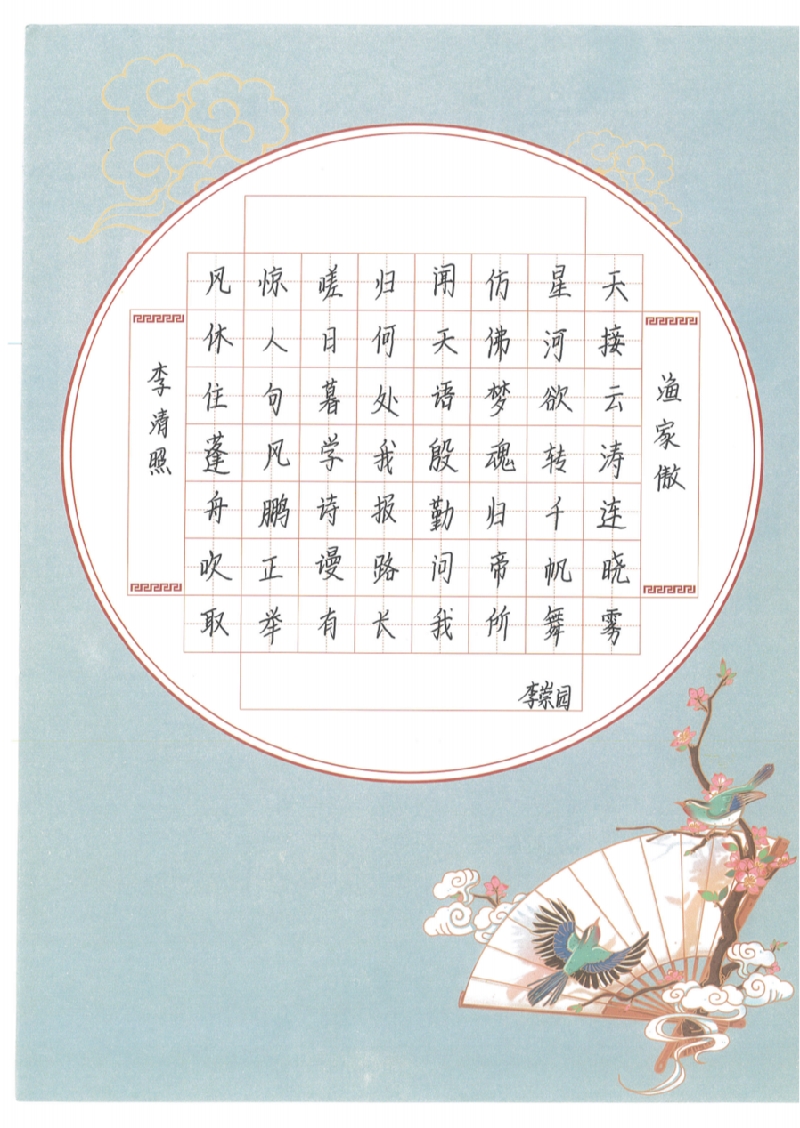 渔家傲
天接云涛连晓雾
星河欲转千帆舞
仿佛梦魂归帝所
闻天语殷勤问我
归何处我报路长
嗟日暮学诗谩有
惊人句风鹏正举
风休住蓬舟吹取
李清照
李崇园